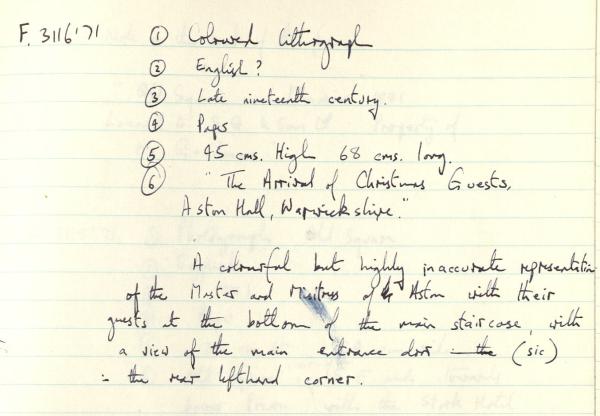 F. 3116'71 ① Coloured lithograph
② English?
③ Late nineteenth century.
④ Paper
⑤ 45 cms. High 68 cms. long.
⑥ "The Arrival of Christmas Guests,
Aston Hall, Warwickshire."
A colourful but highly inaccurate representation
of the Master and Misitress of Aston with their
guests at the bottom of the main staircase, with
a view of the main entrance door the (sic)
in the rear lefthand corner.